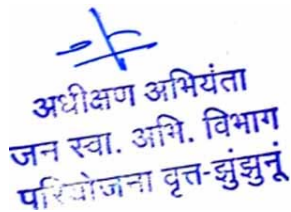 अधीक्षण अभियंता
जन स्वा. अभि. विभाग
परियोजना वृत्त-झुंझुनूं